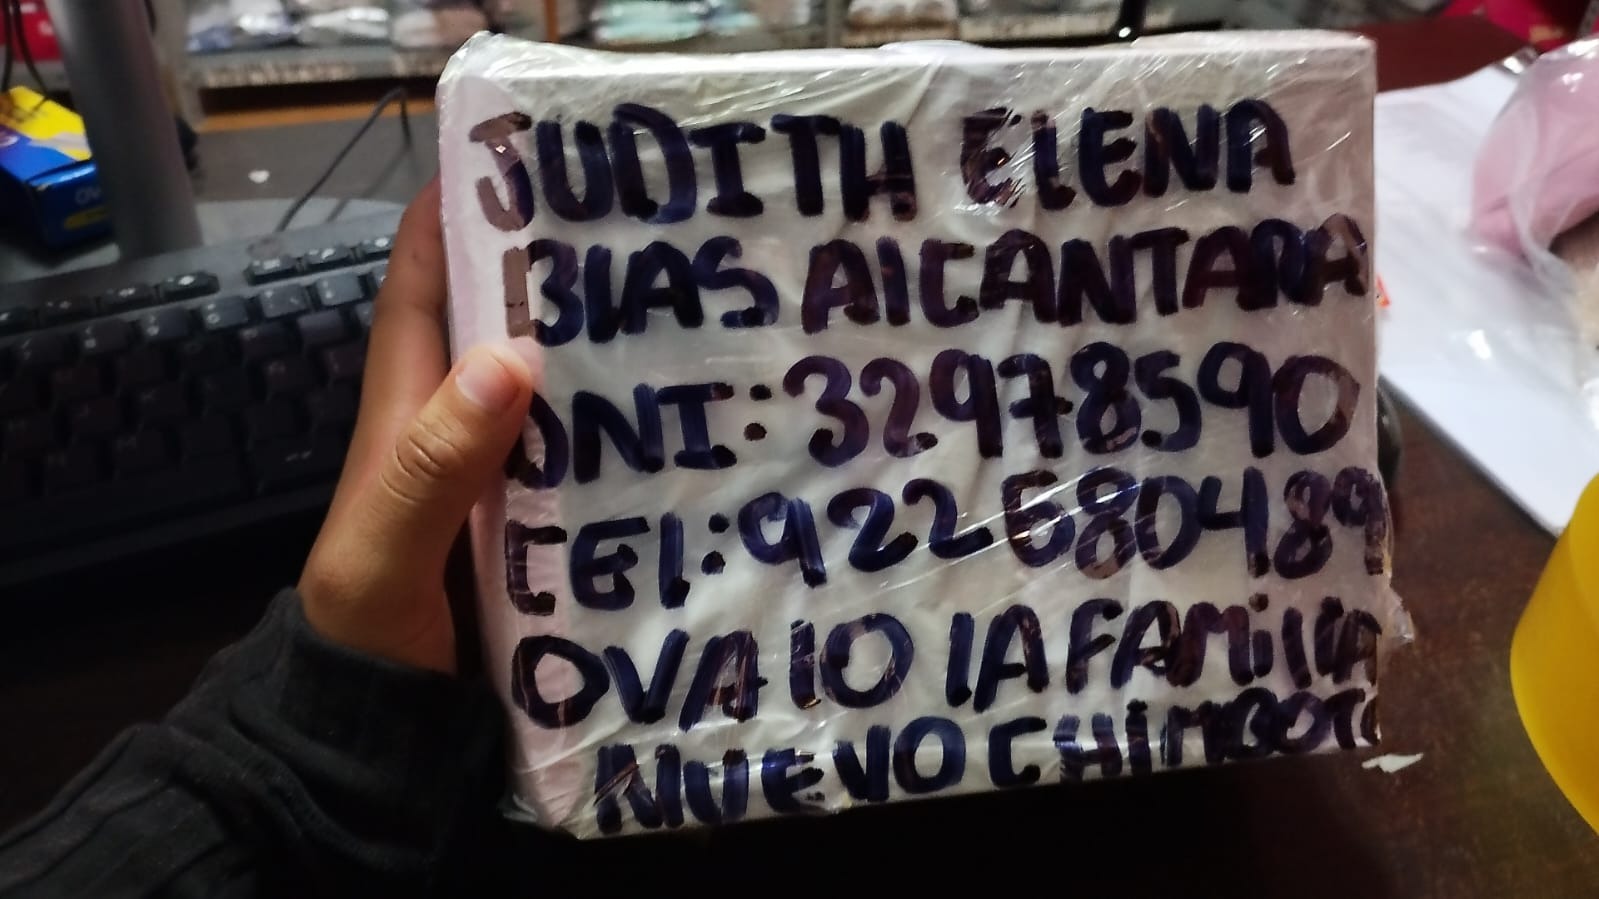 JUDITH ELENA
BLAS ALCANTARA
DNI: 32978590
CEl: 922680489
OVALO LA FAMILIA
NUEVO CHIMBOTE